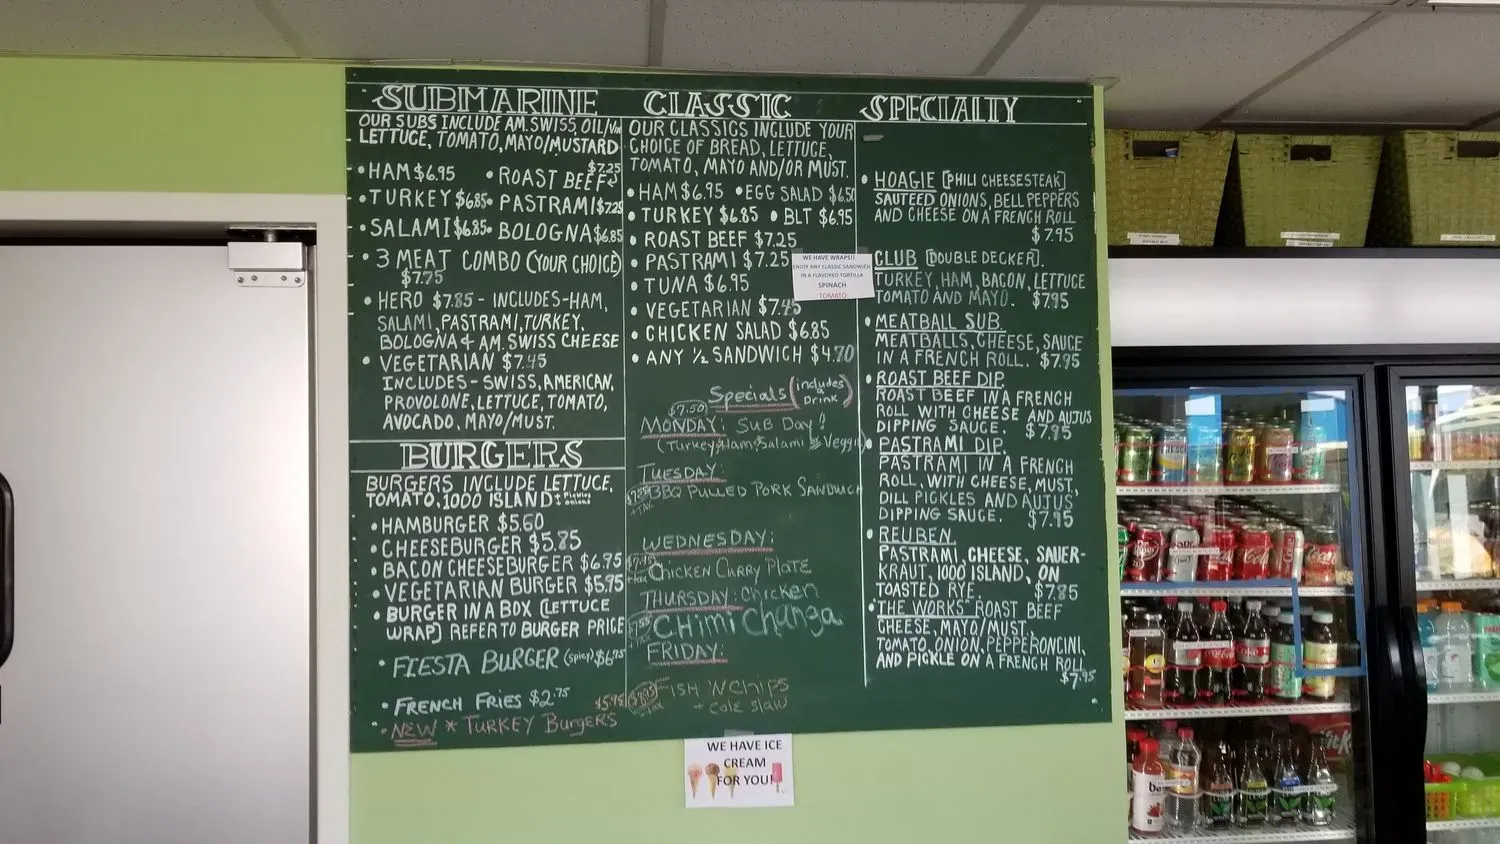 SUBMARINE
OUR SUBS INCLUDE AM. SWISS, OIL/VIN
LETTUCE, TOMATO, MAYO/MUSTARD
• HAM $6.95
• ROAST BEEF $7.25
• TURKEY $6.85
• PASTRAMI $7.25
• SALAMI $6.85
• BOLOGNA $6.85
• 3 MEAT COMBO (YOUR CHOICE)
$7.75
• HERO $7.85 - INCLUDES-HAM,
SALAMI, PASTRAMI, TURKEY,
BOLOGNA & AM. SWISS CHEESE
• VEGETARIAN $7.45
INCLUDES-SWISS, AMERICAN,
PROVOLONE, LETTUCE, TOMATO,
AVOCADO, MAYO/MUST.
BURGERS
BURGERS INCLUDE LETTUCE,
TOMATO, 1000 ISLAND + Pickles
onions
• HAMBURGER $5.60
• CHEESEBURGER $5.85
• BACON CHEESEBURGER $6.95
• VEGETARIAN BURGER $5.95
• BURGER IN A BOX [LETTUCE
WRAP] REFER TO BURGER PRICE
• FIESTA BURGER (spicy) $6.75
• FRENCH FRIES $2.75
• NEW * TURKEY BURGERS $5.95
CLASSIC
OUR CLASSICS INCLUDE YOUR
CHOICE OF BREAD, LETTUCE,
TOMATO, MAYO AND/OR MUST.
• HAM $6.95 • EGG SALAD $6.50
• TURKEY $6.85 • BLT $6.95
• ROAST BEEF $7.25
• PASTRAMI $7.25
• TUNA $6.95
• VEGETARIAN $7.45
• CHICKEN SALAD $6.85
• ANY ½ SANDWICH $4.70
WE HAVE WRAPS!!
ENJOY ANY CLASSIC SANDWICH
IN A FLAVORED TORTILLA
SPINACH
TOMATO
Specials (includes
a Drink)
$7.50
MONDAY: SUB DAY!
(Turkey, Ham, Salami or Veggie)
TUESDAY:
BBQ PULLED PORK SANDWICH
+TAX
WEDNESDAY:
CHICKEN CURRY PLATE
THURSDAY: chicken
CHimi Changa
FRIDAY:
FISH 'N CHIPS
+ cole slaw
SPECIALTY
• HOAGIE [PHILI CHEESESTEAK]
SAUTEED ONIONS, BELL PEPPERS
AND CHEESE ON A FRENCH ROLL
$7.95
CLUB [DOUBLE DECKER].
TURKEY, HAM, BACON, LETTUCE
TOMATO AND MAYO. $7.95
• MEATBALL SUB.
MEATBALLS, CHEESE, SAUCE
IN A FRENCH ROLL. $7.95
• ROAST BEEF DIP.
ROAST BEEF IN A FRENCH
ROLL WITH CHEESE AND AUJUS
DIPPING SAUCE. $7.95
• PASTRAMI DIP.
PASTRAMI IN A FRENCH
ROLL, WITH CHEESE, MUST,
DILL PICKLES AND AUJUS
DIPPING SAUCE. $7.95
• REUBEN.
PASTRAMI, CHEESE, SAUER-
KRAUT, 1000 ISLAND, ON
TOASTED RYE. $7.85
• "THE WORKS" ROAST BEEF
CHEESE, MAYO/MUST.
TOMATO, ONION, PEPPERONCINI,
AND PICKLE ON A FRENCH ROLL
$7.95
WE HAVE ICE
CREAM
FOR YOU!